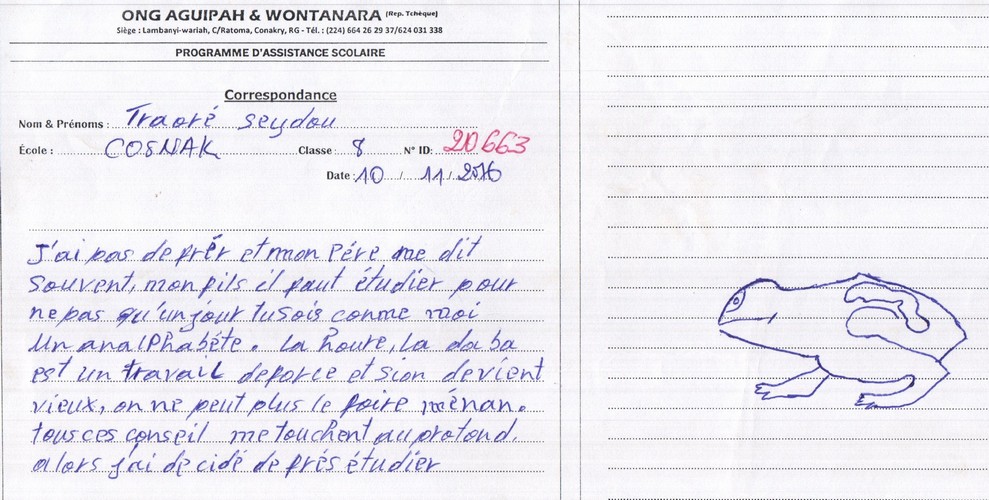 ONG AGUIPAH & WONTANARA (Rep. Tchèque)
Siège : Lambanyi-wariah, C/Ratoma, Conakry, RG - Tél. : (224) 664 26 29 37/624 031 338
PROGRAMME D'ASSISTANCE SCOLAIRE
Correspondance
Nom & Prénoms : Traoré seydou
École : COSNAK Classe : 8 N° ID: 20663
Date : 10 / 11 / 2016
J'ai pas de frér et mon Pére me dit
souvent, mon fils il faut étudier pour
ne pas qu'un jour tu sois comme moi
un analphabéte. la houre, la daba
est un travail de force et si on devient
vieux, on ne peut plus le foire ménan.
tous ces conseil me touchent au profond,
alors j'ai decidé de frés étudier